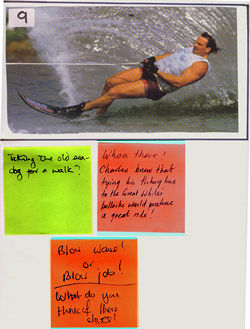 9
Taking the old sea-
dog for a walk?
Whoa there!
Charles knew that
tying his fishing line
to the Great White's
bollocks would produce
a great ride!
Blow wave!
or
Blow job!
What do you
think of these